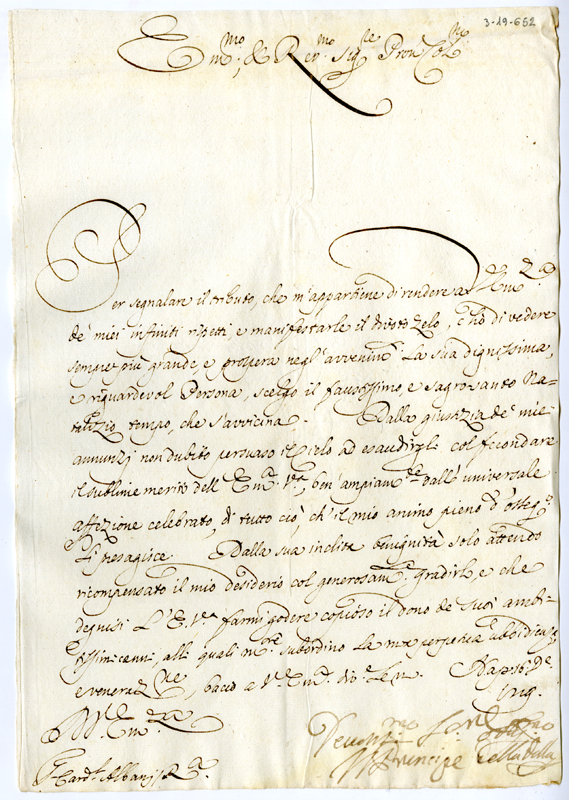 3-19-652
Em.mo, & Rev.mo Sig.re Pron Col.mo
Per segnalare il tributo, che m'appartiene di rendere a
de' miei infiniti rispetti, e manifestarle il divoto zelo, c'hò di vedere
sempre più grande, e prospera negl'avvenim.ti la sua dignissima,
e riguardevol Persona, scelgo il faustissimo, e sagro-santo Na-
talizio tempo, che s'avvicina. Dalla giustizia de' miei
annunzj non dubito persuaso il Cielo ad esaudirgli col fecondare
il sublime merito dell' Em.za V.ra, ben' ampiam.te dall' universale
affezione celebrato, di tutto ciò, ch' il mio animo pieno d'osseq.o
Li presagisce. Dalla sua inclita benignità solo attendo
ricompensato il mio desiderio col generosam.te gradirli, e che
degnisi L'E. V.ra farmi godere copioso il dono de' suoi ambi-
tissimi cenni, alli quali subordino la mia perpetua ubbidienza,
e veneraz.ne, bacio a V. Em.
Nap.
V. Em.za
Car.le Albanj
Devotis.mo
Il Principe della